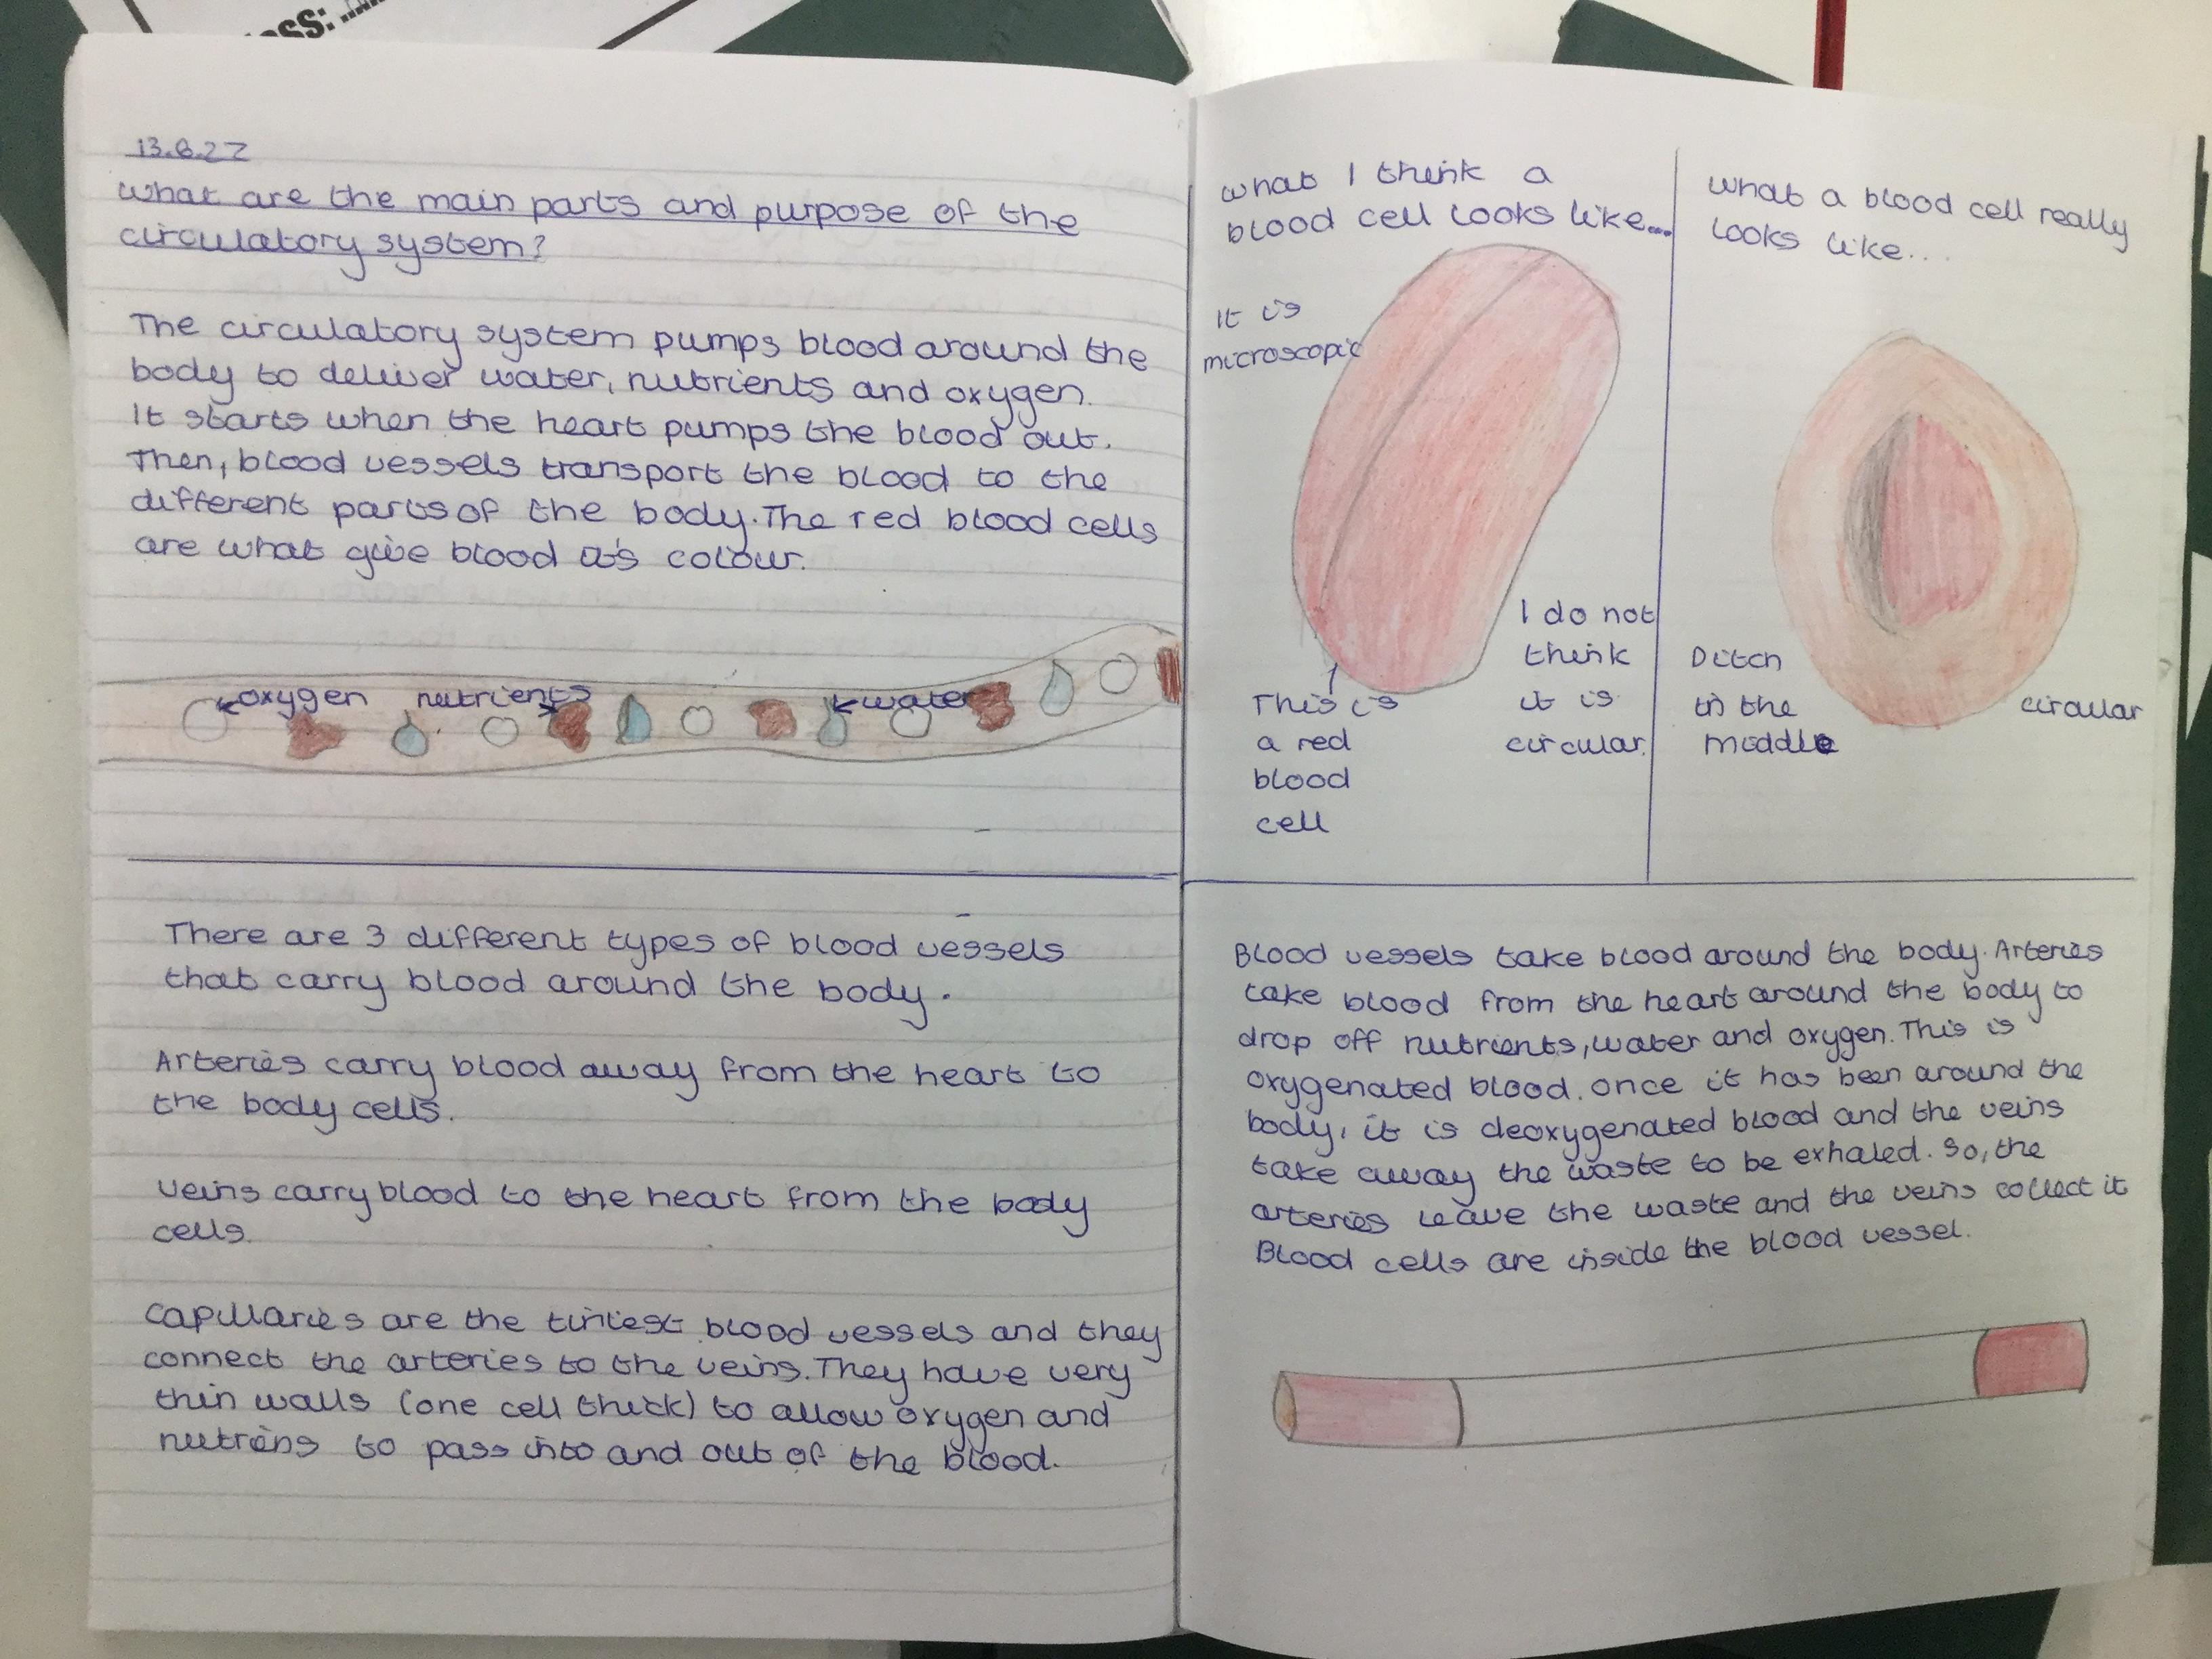 ss:
13.6.22
What are the main parts and purpose of the
circulatory system?
The circulatory system pumps blood around the
body to deliver water, nutrients and oxygen.
It starts when the heart pumps the blood out.
Then, blood vessels transport the blood to the
different parts of the body. The red blood cells
are what give blood its colour.
oxygen nutrients water
There are 3 different types of blood vessels
that carry blood around the body.
Arteries carry blood away from the heart to
the body cells.
Veins carry blood to the heart from the body
cells.
Capillaries are the tiniest blood vessels and they
connect the arteries to the veins. They have very
thin walls (one cell thick) to allow oxygen and
nutriens to pass into and out of the blood.
What I think a
blood cell looks like...
It is
microscopic
This is
a red
blood
cell
I do not
think
it is
circular.
What a blood cell really
looks like...
Ditch
in the
middle
circular
Blood vessels take blood around the body. Arteries
take blood from the heart around the body to
drop off nutrients, water and oxygen. This is
oxygenated blood. Once it has been around the
body, it is deoxygenated blood and the veins
take away the waste to be exhaled. So, the
arteries leave the waste and the veins collect it
Blood cells are inside the blood vessel.